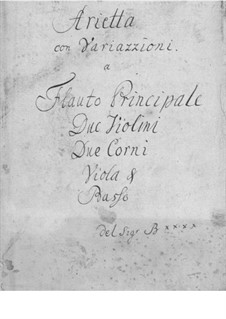 Arietta
con Variazzioni.
a
Flauto Principale
Due Violini
Due Corni
Viola &
Basso
Del Sigr B××××